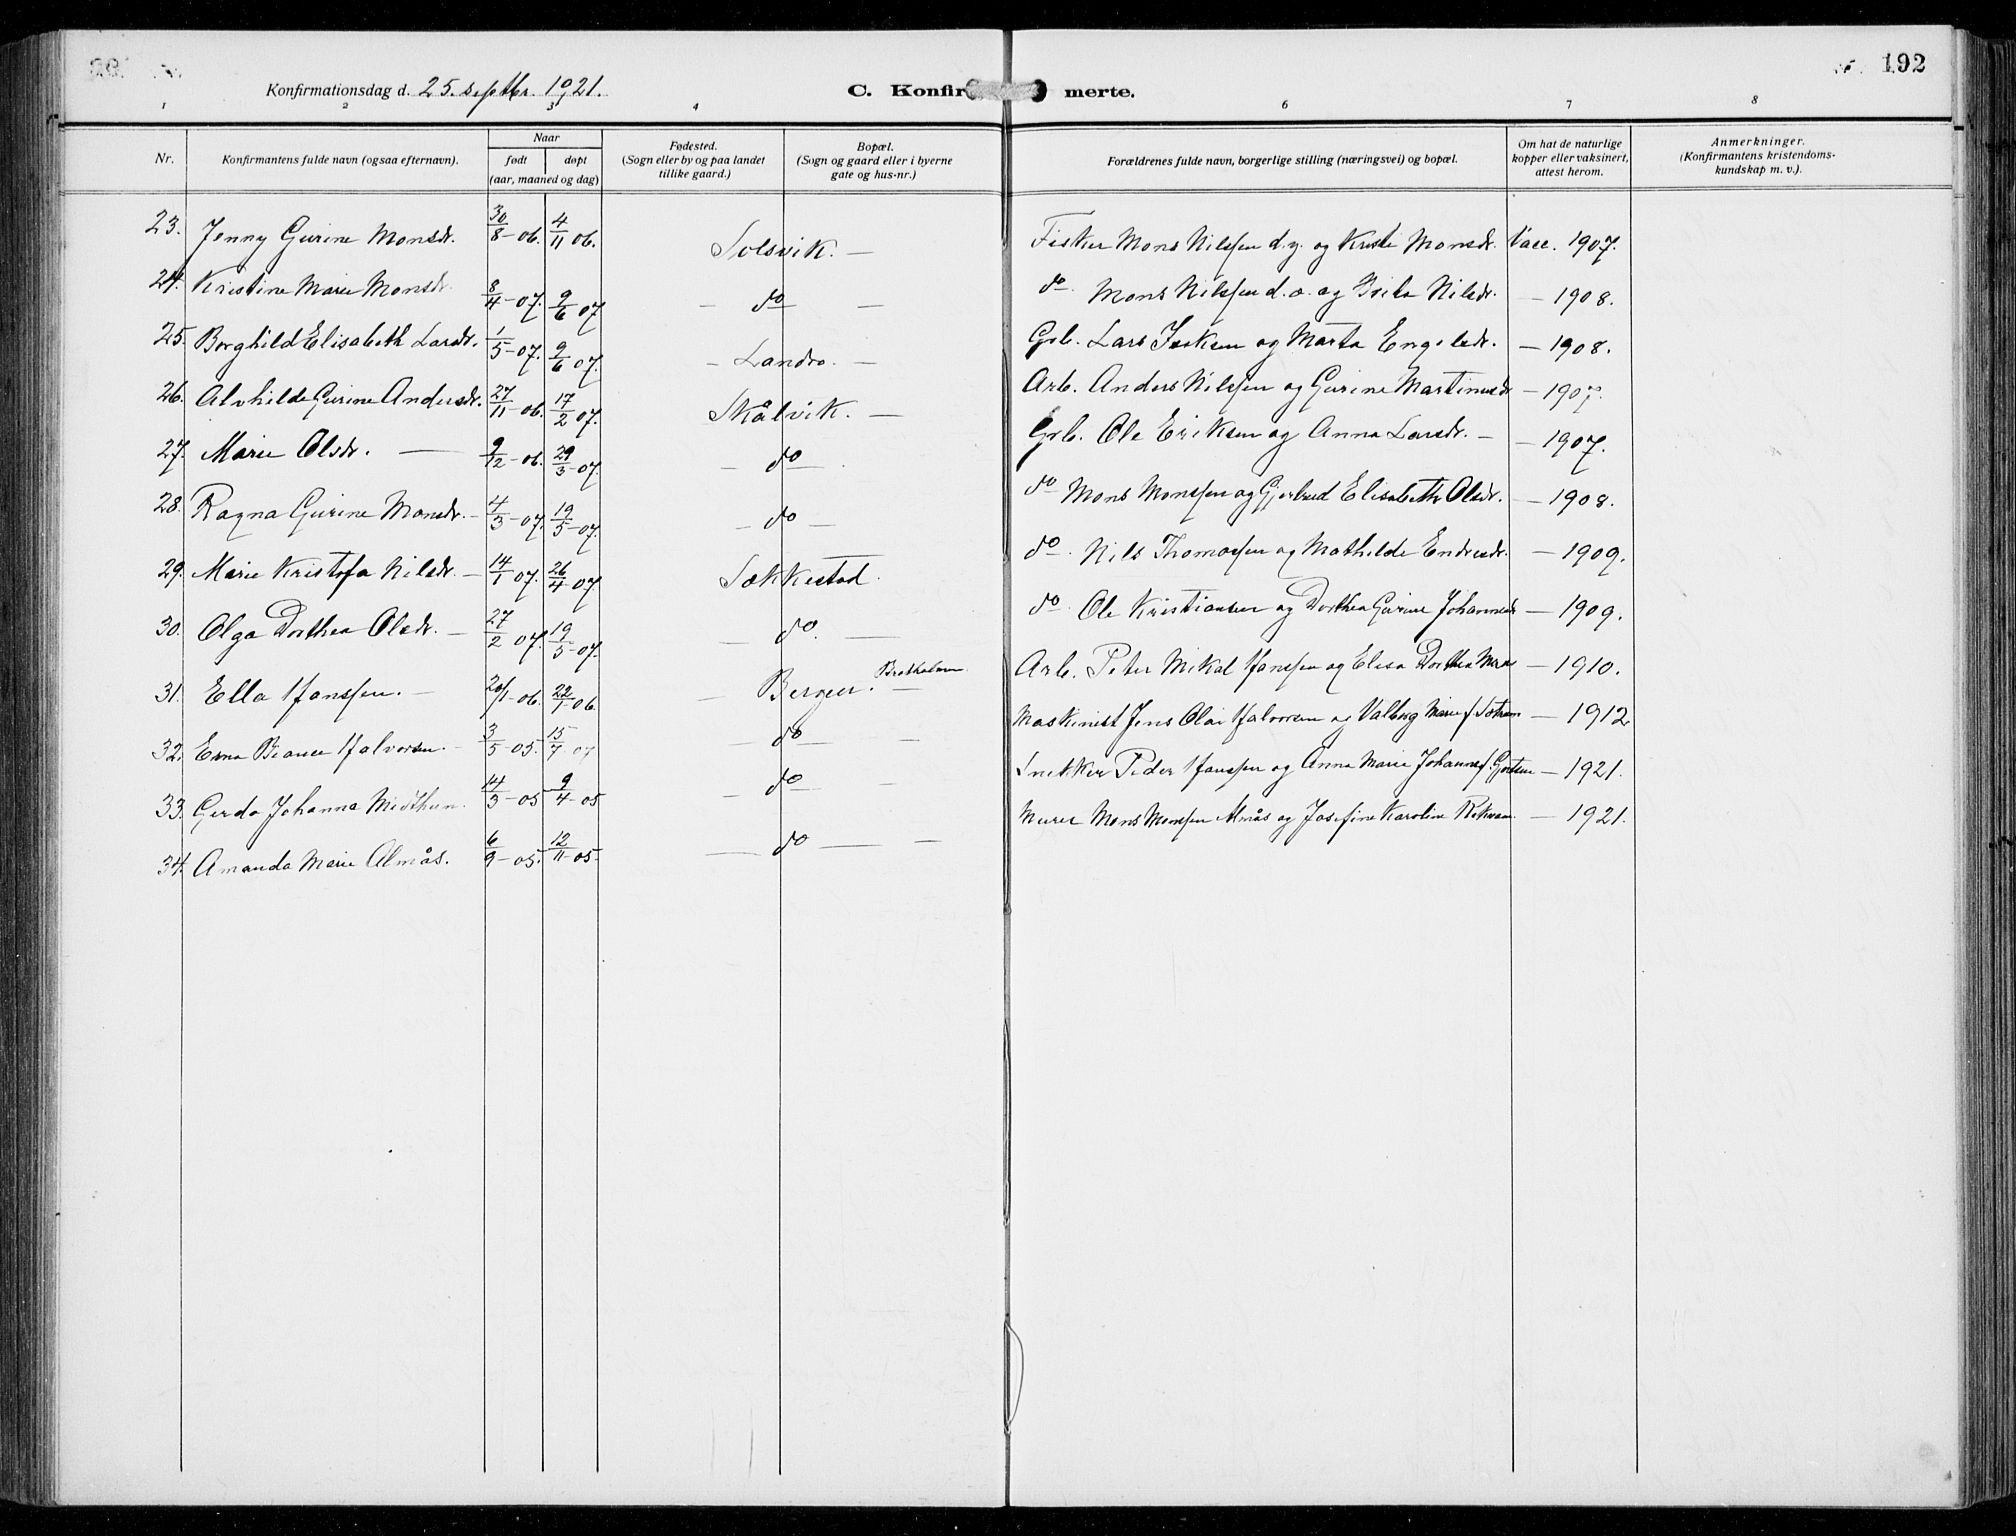 192
Konfirmationsdag d. 25. septbr. 1921.
C. Konfir merte.
1 2 3 4 6 7 8
Nr. Konfirmantens fulde navn (ogsaa efternavn). Naar født døpt (aar, maaned og dag) Fødested. (Sogn eller by og paa landet tillike gaard.) Bopæl. (Sogn og gaard eller i byerne gate og hus-nr.) Forældrenes fulde navn, borgerlige stilling (næringsvei) og bopæl. Om hat de naturlige kopper eller vaksinert, attest herom. Anmerkninger. (Konfirmantens kristendoms-kundskap m. v.).
23. Jenny Gurine Monsdr. 30/8-06. 4/11 06. Solsvik. — Fisker Mons Nilssen d.y. og Kristi Monsdr. Vacc. 1907.
24. Kristine Marie Monsdr. 8/4-07. 9/6 07 — do — do. Mons Nilssen d.æ. og Brita Nilsdr. — 1908.
25. Borghild Elisabeth Larsdr. 1/5-07. 9/6 07. — Landro. — Grb. Lars Isaksen og Marta Engelsdr. — 1908.
26. Alvhilde Gurine Andersdr. 27/11-06. 17/2 07. Skålvik. — Arb. Anders Nilssen og Gurine Martinusdr — 1907.
27. Marie Olsdr. — 9/12-06. 29/3-07. — do — Grb. Ole Eriksen og Anna Larsdr. — — 1907.
28. Ragna Gurine Monsdr. — 4/3-07. 19/5-07. — do — do Mons Monssen og Gjertrud Elisabeth Olsdr. — 1908.
29. Marie Kristofa Nilsdr. — 14/1 07. 26/4-07 Sækkestad. do. Nils Thomassen og Mathilde Endresdr. — 1909.
30. Olga Dorthea Olsdr. — 27/2 07. 19/5-07. — do. — do. Ole Kristiansen og Dorthea Gurine Johannesdr — 1909.
31. Ella Hanssen. — 20/1-06. 22/1 06 — Bergen. — Bratholmen. Arb. Peter Mikal Hanssen og Elisa Dorthea — 1910.
32. Erna Halvorsen. — 3/5-05. 15/7-07 — do — — Maskinist Jens Olai Halvorsen og Valborg Marie f. — 1912
33. Gerda Johanna Midthun. 14/3-05 9/4-05 — do — — Snekker Peder Hanssen og Anna Marie Johanna f. — 1921.
34. Amanda Marie Almås. 6/9-05. 12/11-05- — do — — Murer Mons Monssen Almås og Josefine Karoline — 1921.